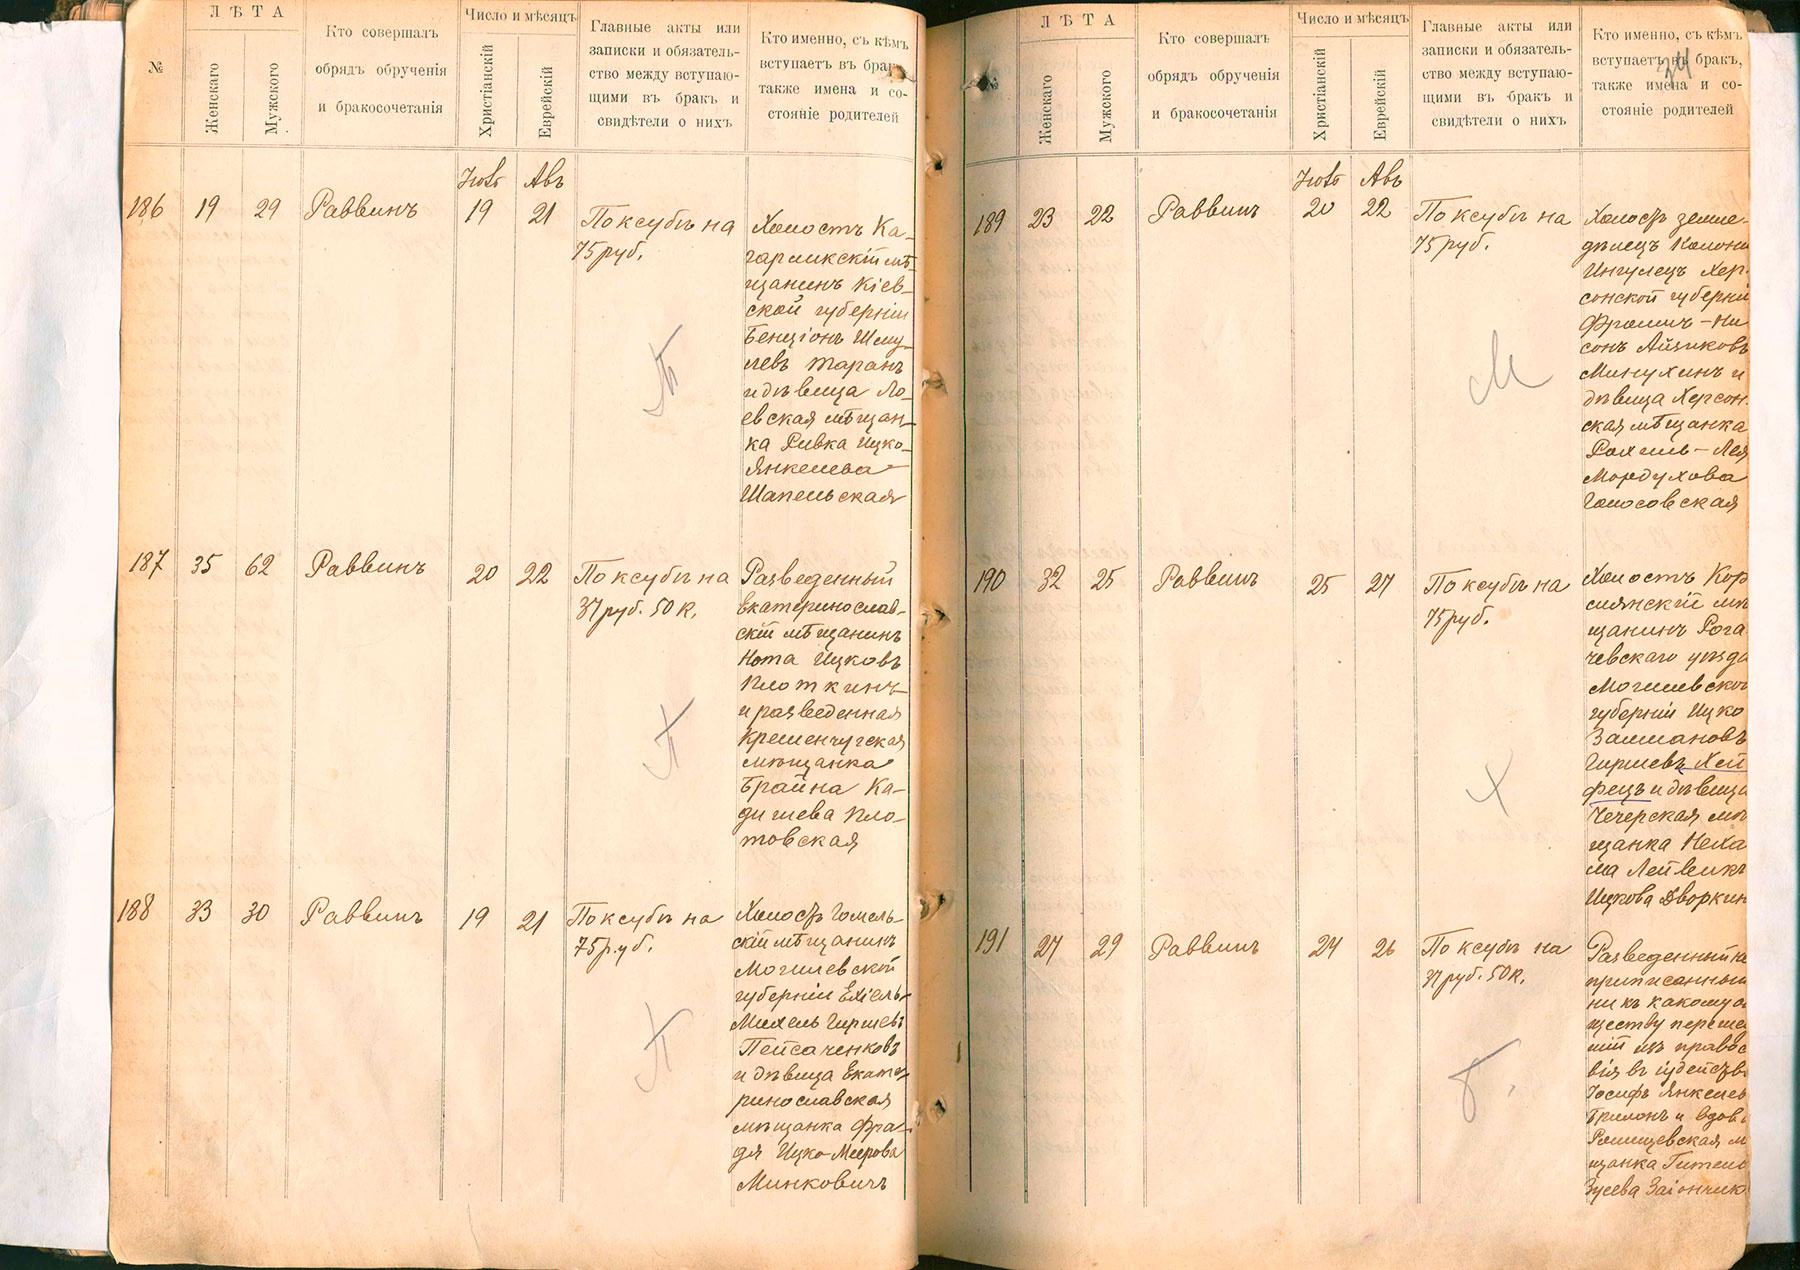 №
ЛѢТА
Женскаго
Мужского
Кто совершалъ
обрядъ обрученія
и бракосочетанія
Число и мѣсяцъ
Христіанскій
Еврейскій
Главные акты или
записки и обязатель-
ство между вступаю-
щими въ бракъ и
свидѣтели о нихъ
Кто именно, съ кѣмъ
вступаетъ въ бракъ
также имена и со-
стояніе родителей
Авъ
186 19 29 Раввинъ 19 21
По ксубѣ на
75 руб.
Холостъ Ка-
гарликскій мѣ-
щанинъ Кіев-
ской губерніи
Бенціонъ Шму-
левъ Таранъ
и дѣвица Ло-
евская мѣщан-
ка Ривка Ицко-
Янкелева
Шапельская
Т
187 35 62 Раввинъ 20 22
По ксубѣ на
37 руб. 50 к.
Разведенный
Екатеринослав-
скій мѣщанинъ
Нота Ицковъ
Плоткинъ
и разведенная
Кременчугская
мѣщанка
Брайна Ка-
дишева Пло-
товская
П
188 33 30 Раввинъ 19 21
По ксубѣ на
75 руб.
Холостъ Гомель-
скій мѣщанинъ
Могилевской
губерніи Ехіель-
Михель Гиршевъ
Пейсаченковъ
и дѣвица Екате-
ринославская
мѣщанка Фра-
дя Ицко-Меерова
Минковичъ
П
№
34
ЛѢТА
Женскаго
Мужского
Кто совершалъ
обрядъ обрученія
и бракосочетанія
Число и мѣсяцъ
Христіанскій
Еврейскій
Главные акты или
записки и обязатель-
ство между вступаю-
щими въ бракъ и
свидѣтели о нихъ
Кто именно, съ кѣмъ
вступаетъ въ бракъ,
также имена и со-
стояніе родителей
Авъ
189 23 22 Раввинъ 20 22
По ксубѣ на
75 руб.
Холостъ земле-
дѣлецъ Колоніи
Ингулецъ Хер-
сонской губерніи
Фроимъ-Ни
сонъ Айзиковъ
Минухинъ и
дѣвица Херсон-
ская мѣщанка
Рохель-Лея
Мордухова
Голосовская
М
190 32 25 Раввинъ 25 27
По ксубѣ на
75 руб.
Холостъ Кор
мянскій мѣ
щанинъ Рога
чевскаго уѣзда
Могилевской
губерніи Ицко
Залмановъ
Гиршевъ Хей
фецъ и дѣвица
Чечерская мѣ
щанка Неха
ма Лейвикъ
Ицкова Дворкин
Х
191 27 29 Раввинъ 24 26
По ксубѣ на
37 руб. 50 к.
Разведенный не
приписанный
ни къ какому об
ществу переше
шій изъ правос
вія въ іудейств
Іосифъ Янкелев
Брилонъ и вдова
мѣ
щанка Гитель
Зусева Заіончик
Б.